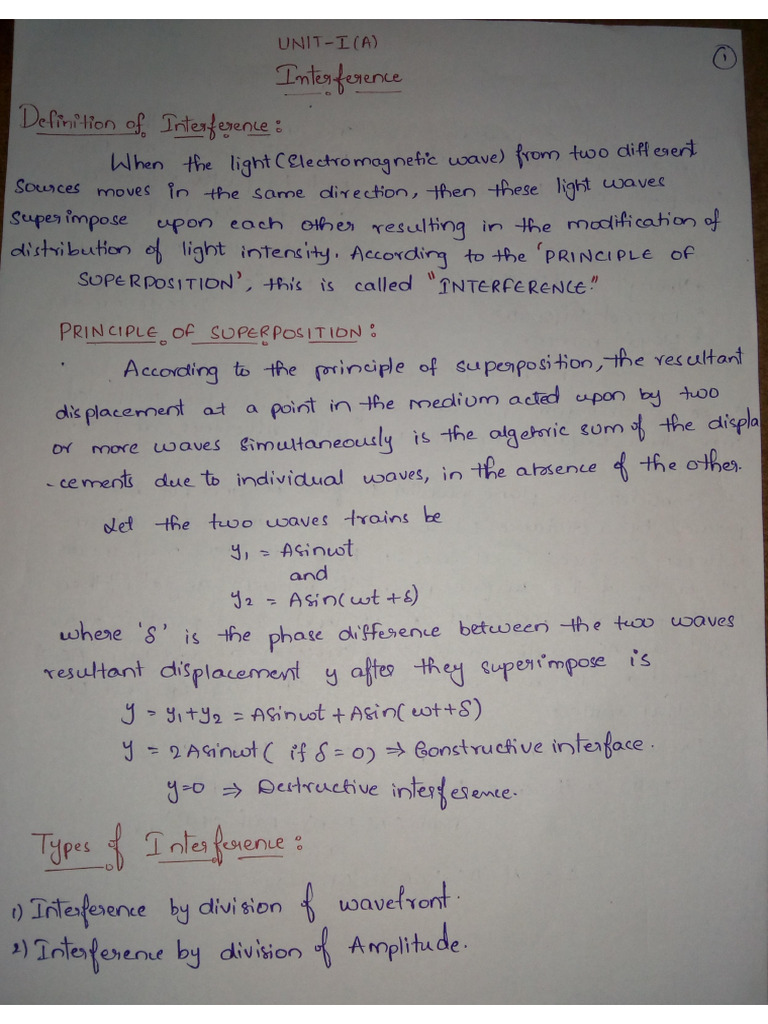 UNIT-I(A)
①
Interference
Definition of Interference:
When the light (Electromagnetic wave) from two different
sources moves in the same direction, then these light waves
superimpose upon each other resulting in the modification of
distribution of light intensity. According to the 'PRINCIPLE OF
SUPERPOSITION', this is called "INTERFERENCE."
PRINCIPLE OF SUPERPOSITION:
According to the principle of superposition, the resultant
displacement at a point in the medium acted upon by two
or more waves simultaneously is the algebric sum of the displa
-cements due to individual waves, in the absence of the other.
Let the two waves trains be
y₁ = Asinωt
and
y₂ = Asin(ωt+δ)
where 'δ' is the phase difference between the two waves
resultant displacement y after they superimpose is
y = y₁+y₂ = Asinωt + Asin(ωt+δ)
y = 2Asinωt ( if δ=0) ⇒ Constructive interface.
y=0 ⇒ Destructive interference.
Types of Interference:
1) Interference by division of wavefront.
2) Interference by division of Amplitude.